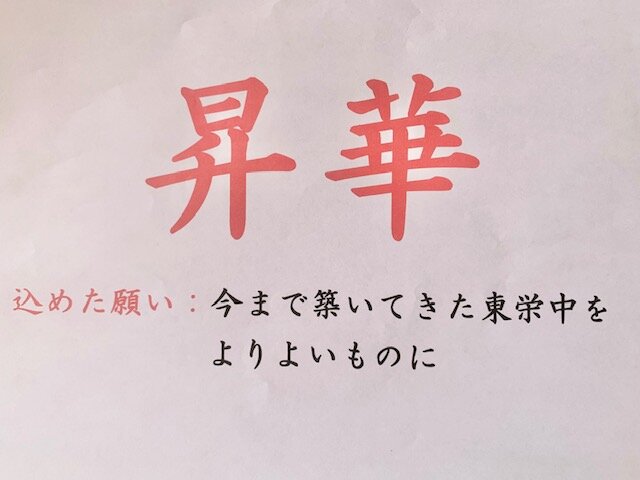 昇華
込めた願い：今まで築いてきた東栄中を
よりよいものに